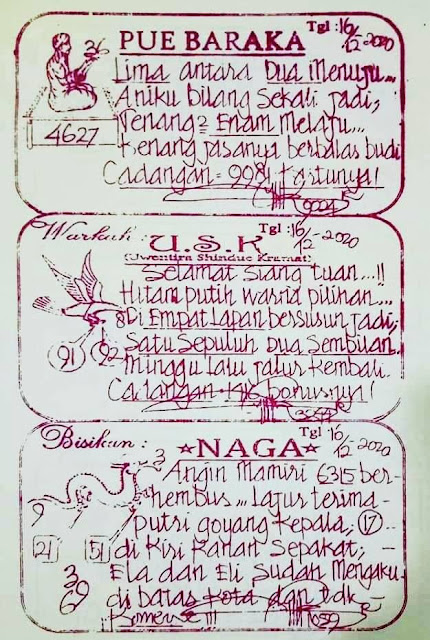 PUE BARAKA
Tgl : 16/12-2020
36
4627
Lima antara Dua Menuju...
Aniku bilang Sekali jadi,
Tenang2 Enam Melaju...
Kenang jasanya berbalas budi
Cadangan = 9981 Kartunya!
Warkah :
Tgl : 16/12-2020
U.S.K
(Uwentira Shindue Kramat)
Selamat Siang tuan...!!
Hitam putih warna pilihan...
Di Empat Lapan bersusun jadi,
Satu Sepuluh Dua Sembilan.
91
92
Minggu lalu jalur kembali.
Cadangan = 1916 bonusnya!
Bisikan :
Tgl 16/12-2020
NAGA
3
Angin Mamiri 6315 ber-
hembus... Lajur terima-
9
putri goyang kepala, 17...
21
51
di Kiri Kanan Sepakat,
36
Ela dan Eli Sudah Mengaku-
69
di batas Kota dan tdk